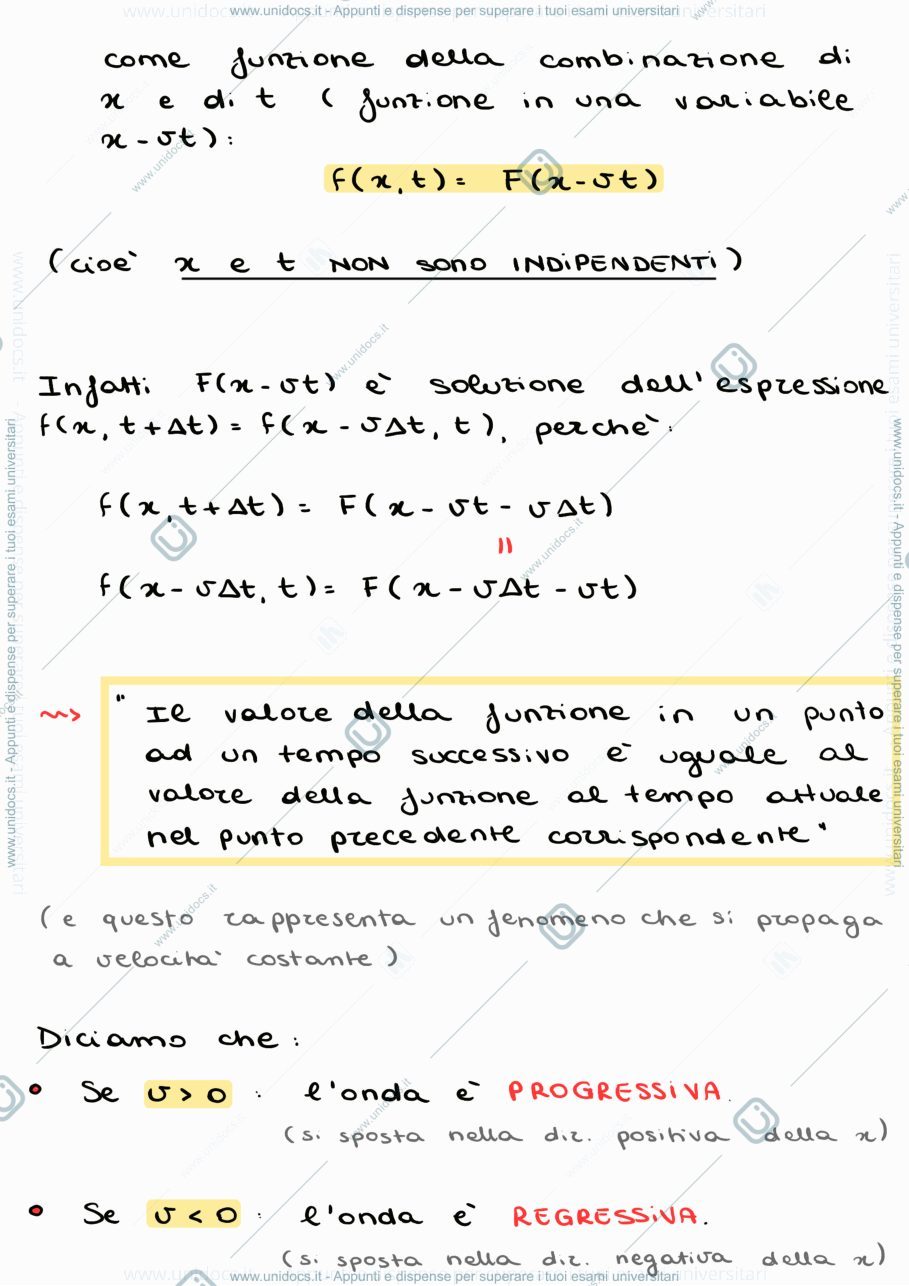 www.unidocs.it - Appunti e dispense per superare i tuoi esami universitari
come funzione della combinazione di
x e di t ( funzione in una variabile
x - vt ) :
f(x, t) = F(x - vt)
(cioè x e t NON sono INDIPENDENTI)
Infatti F(x - vt) è soluzione dell'espressione
f(x, t + Δt) = f(x - vΔt, t), perchè :
f(x, t + Δt) = F(x - vt - vΔt)
=
f(x - vΔt, t) = F(x - vΔt - vt)
" Il valore della funzione in un punto
ad un tempo successivo è uguale al
valore della funzione al tempo attuale
nel punto precedente corrispondente "
(e questo rappresenta un fenomeno che si propaga
a velocità costante)
Diciamo che :
• Se v > 0 : l'onda è PROGRESSIVA.
(si sposta nella dir. positiva della x)
• Se v < 0 : l'onda è REGRESSIVA.
(si sposta nella dir. negativa della x)
www.unidocs.it - Appunti e dispense per superare i tuoi esami universitari
www.unidocs.it - Appunti e dispense per superare i tuoi esami universitari
www.unidocs.it - Appunti e dispense per superare i tuoi esami universitari